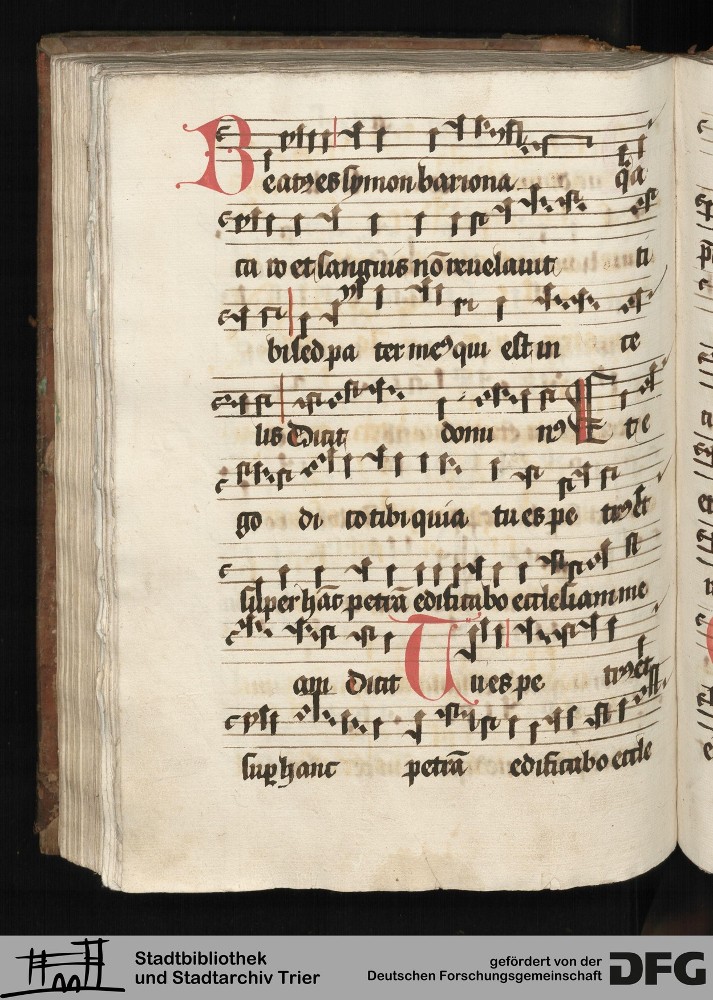 Beatꝰ es symon bariona q̄a
ca ro et sanguis nō reuelauit ti
bi sed pa ter meꝰ qui est in ce
lis Dicit domi nꝰ Et e
go di co tibi quia tu es pe trꝰ Et
super hāc petrā edificabo ecclesiam me
am dicit Tu es pe trꝰ et
suꝑ hanc petrā edificabo eccle
Stadtbibliothek
und Stadtarchiv Trier
gefördert von der
Deutschen Forschungsgemeinschaft DFG